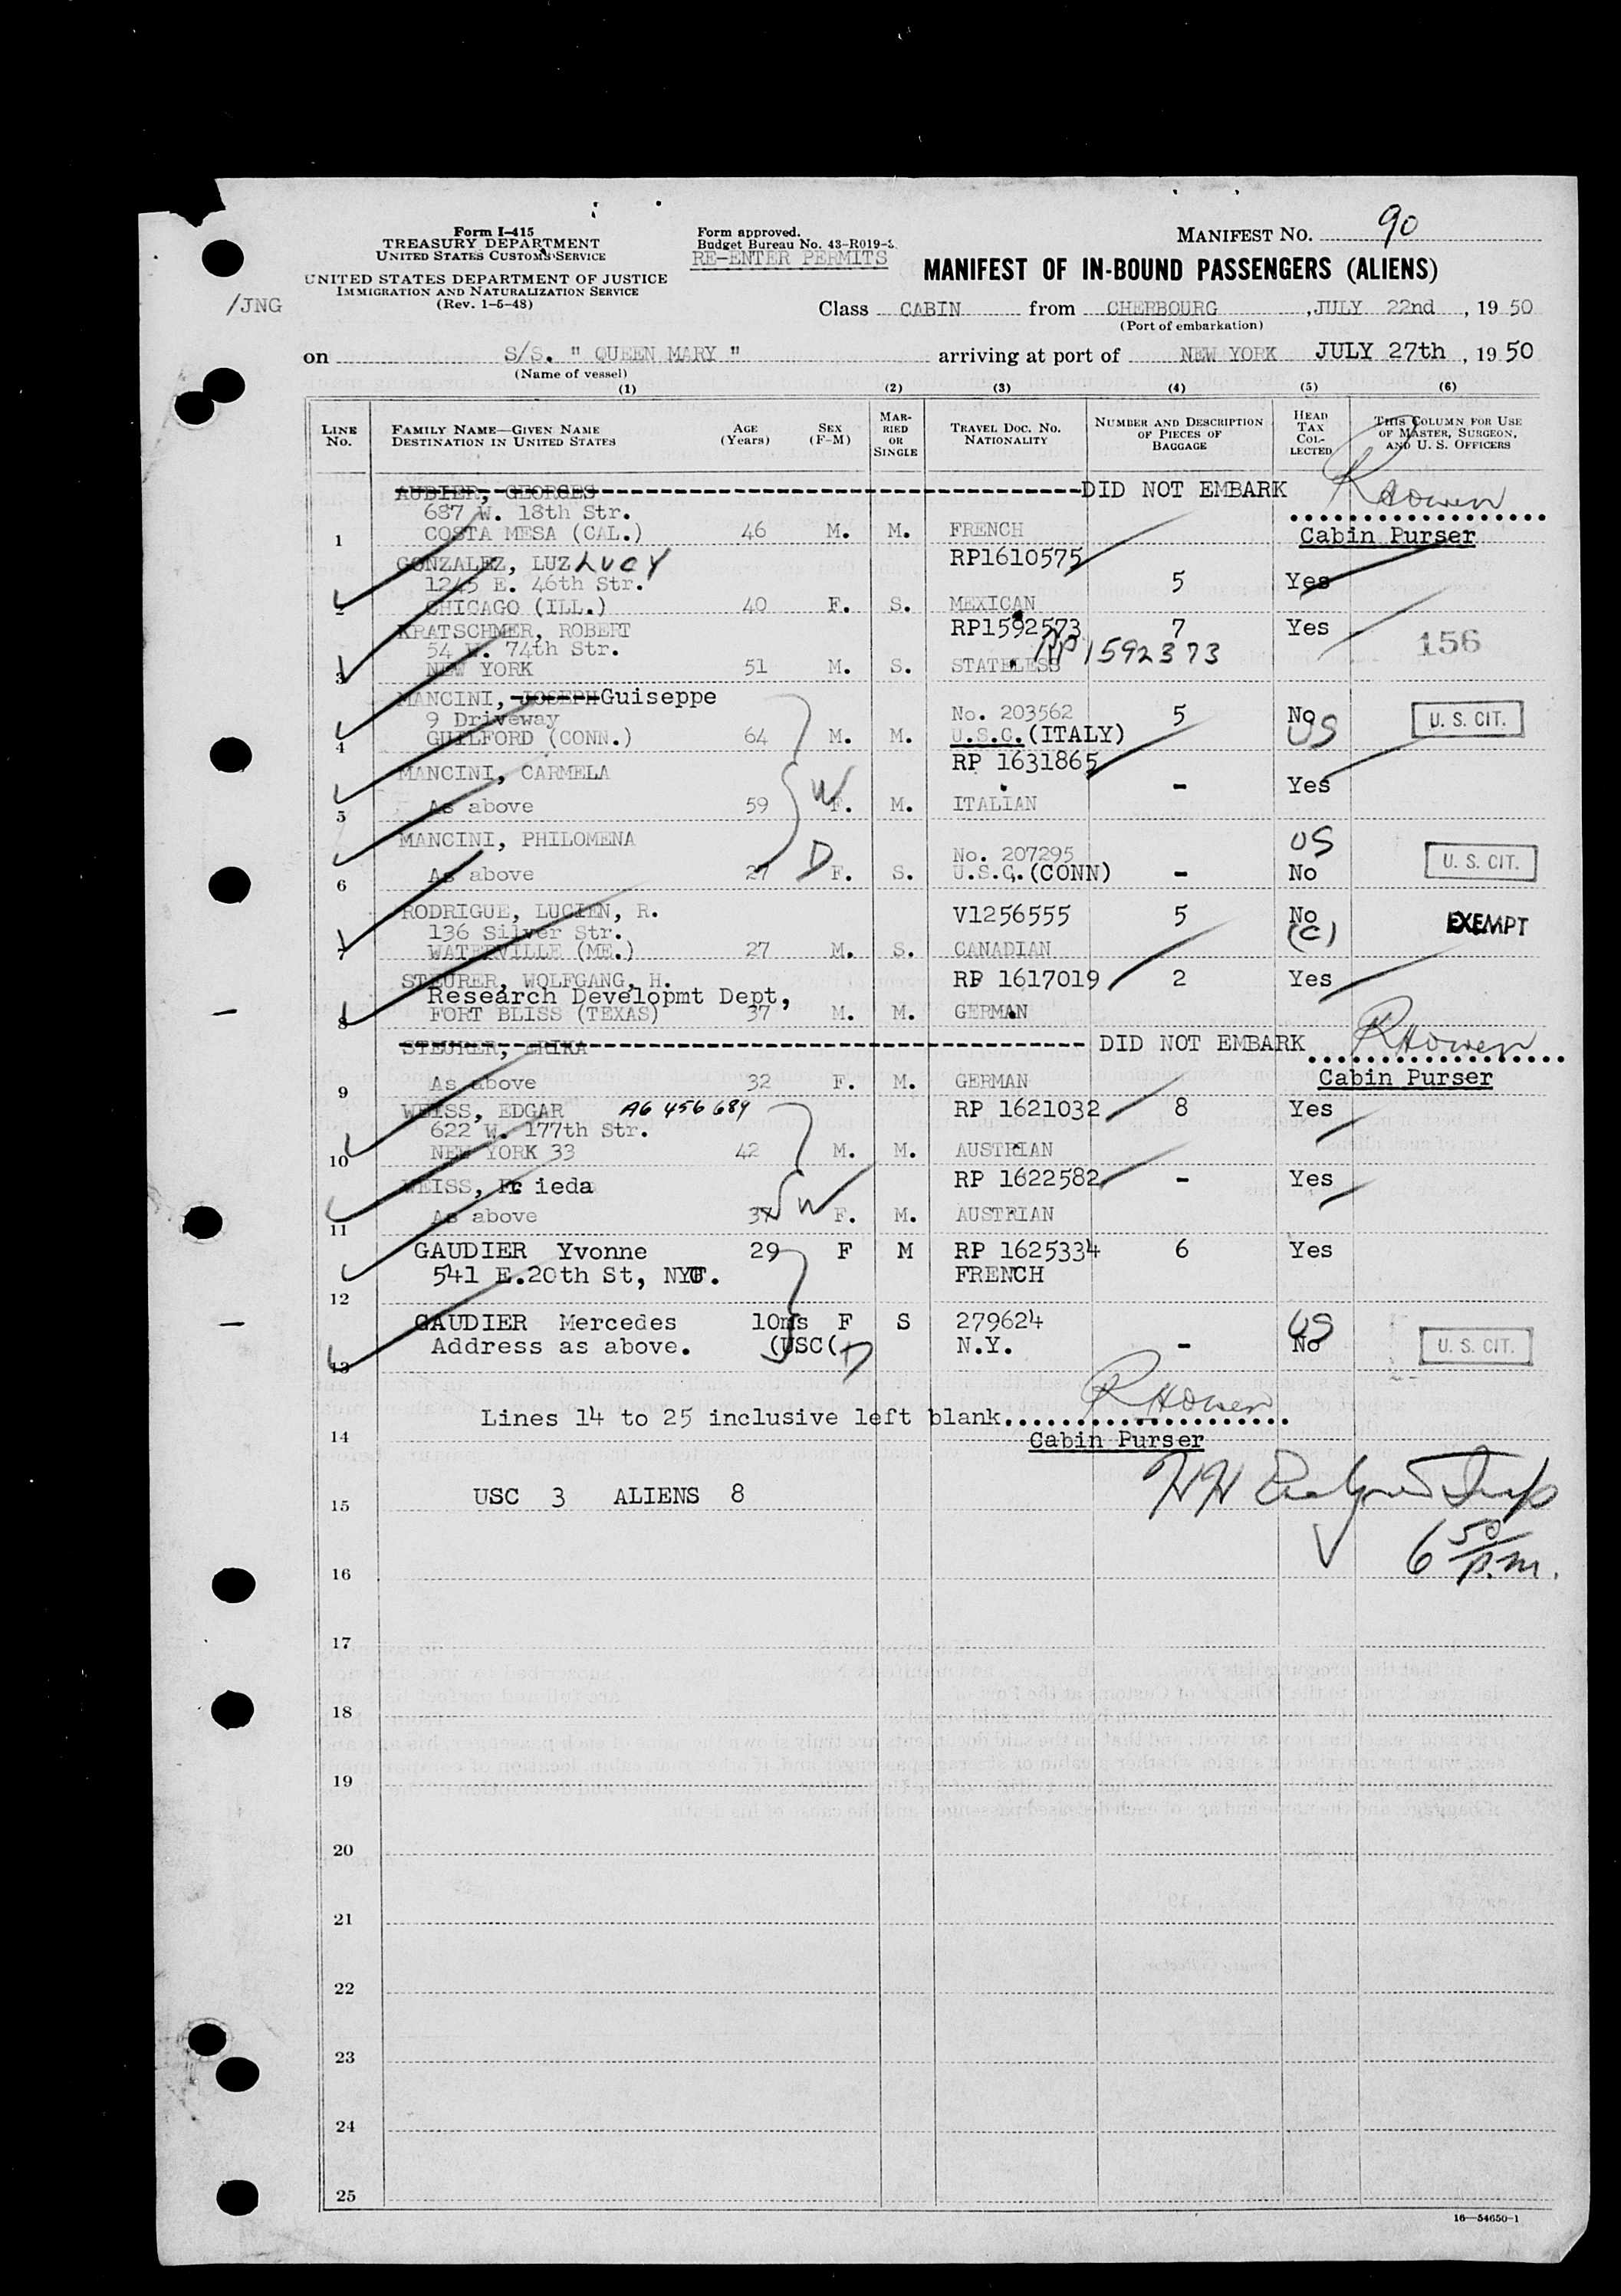 Form I-415
TREASURY DEPARTMENT
UNITED STATES CUSTOMS SERVICE
UNITED STATES DEPARTMENT OF JUSTICE
IMMIGRATION AND NATURALIZATION SERVICE
(Rev. 1-5-48)
/JNG
Form approved.
Budget Bureau No. 43-R019-
RE-ENTER PERMITS
MANIFEST NO. 90
MANIFEST OF IN-BOUND PASSENGERS (ALIENS)
Class CABIN from CHERBOURG, JULY 22nd, 1950
(Port of embarkation)
on S/S. " QUEEN MARY " arriving at port of NEW YORK JULY 27th, 1950
(Name of vessel)
(1) (2) (3) (4) (5) (6)
LINE No. FAMILY NAME—GIVEN NAME DESTINATION IN UNITED STATES AGE (Years) SEX (F-M) MARRIED OR SINGLE TRAVEL DOC. NO. NATIONALITY NUMBER AND DESCRIPTION OF PIECES OF BAGGAGE HEAD TAX COLLECTED THIS COLUMN FOR USE OF MASTER, SURGEON, AND U. S. OFFICERS
AUBIER, GEORGES DID NOT EMBARK RHowen
687 W. 18th Str.
1 COSTA MESA (CAL.) 46 M. M. FRENCH Cabin Purser
GONZALEZ, LUZ LUCY RP1610575
1245 E. 46th Str. 5 Yes
2 CHICAGO (ILL.) 40 F. S. MEXICAN
KRATSCHMER, ROBERT RP1592573 7 Yes 156
54 W. 74th Str. RP 1592373
3 NEW YORK 51 M. S. STATELESS
MANCINI, JOSEPH Guiseppe
9 Driveway No. 203562 5 No US U. S. CIT.
4 GUILFORD (CONN.) 64 M. M. U.S.C. (ITALY)
MANCINI, CARMELA RP 1631865 - Yes
5 As above 59 W F. M. ITALIAN
MANCINI, PHILOMENA No. 207295 US U. S. CIT.
6 As above 27 D F. S. U.S.C. (CONN) - No
RODRIGUE, LUCIEN, R. V1256555 5 No (C) EXEMPT
136 Silver Str.
7 WATERVILLE (ME.) 27 M. S. CANADIAN
STEURER, WOLFGANG, H. RP 1617019 2 Yes
Research Developmt Dept,
8 FORT BLISS (TEXAS) 37 M. M. GERMAN
STEURER, ERIKA DID NOT EMBARK RHowen
9 As above 32 F. M. GERMAN Cabin Purser
WEISS, EDGAR A6 456 689 RP 1621032 8 Yes
622 W. 177th Str.
10 NEW YORK 33 42 M. M. AUSTRIAN
WEISS, Frieda RP 1622582 - Yes
11 As above 37 W F. M. AUSTRIAN
GAUDIER Yvonne 29 F M RP 1625334 6 Yes
541 E.20th St, NYC. FRENCH
12
GAUDIER Mercedes 10ms F S 279624 US
Address as above. (USC( D N.Y. - No U. S. CIT.
13
Lines 14 to 25 inclusive left blank. RHowen
14 Cabin Purser
15 USC 3 ALIENS 8
6 50 p.m.
16
17
18
19
20
21
22
23
24
25
16—54650-1